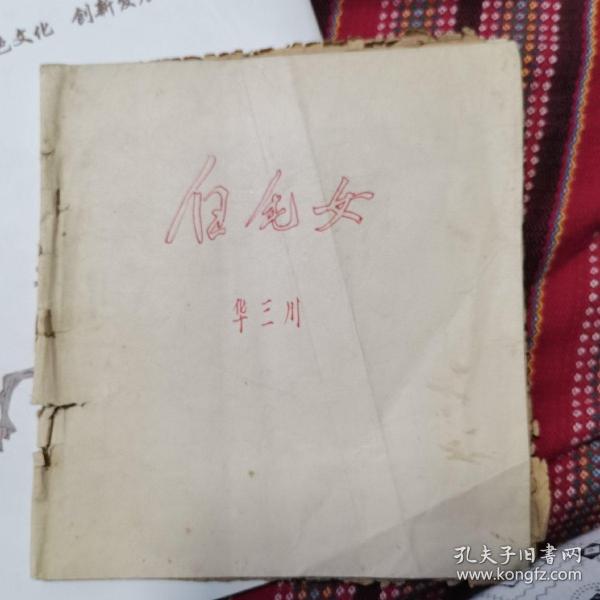 色文化 创新发展
白毛女
华三川
孔夫子旧书网
www.kongfz.com